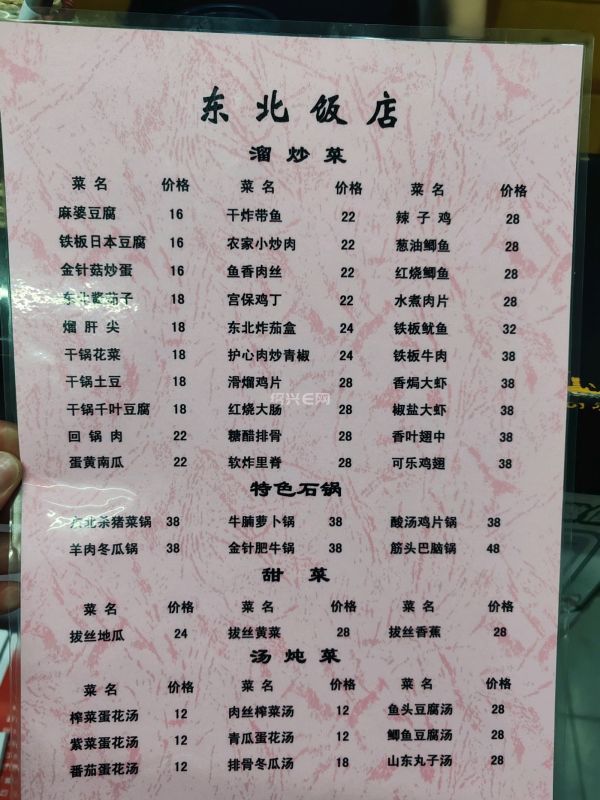 东北饭店
溜炒菜
菜名 价格 菜名 价格 菜名 价格
麻婆豆腐 16 干炸带鱼 22 辣子鸡 28
铁板日本豆腐 16 农家小炒肉 22 葱油鲫鱼 28
金针菇炒蛋 16 鱼香肉丝 22 红烧鲫鱼 28
东北酱茄子 18 宫保鸡丁 22 水煮肉片 28
熘肝尖 18 东北炸茄盒 24 铁板鱿鱼 32
干锅花菜 18 护心肉炒青椒 24 铁板牛肉 38
干锅土豆 18 滑熘鸡片 28 香焗大虾 38
干锅千叶豆腐 18 红烧大肠 28 椒盐大虾 38
回锅肉 22 糖醋排骨 28 香叶翅中 38
蛋黄南瓜 22 软炸里脊 28 可乐鸡翅 38
绍兴E网
特色石锅
东北杀猪菜锅 38 牛腩萝卜锅 38 酸汤鸡片锅 38
羊肉冬瓜锅 38 金针肥牛锅 38 筋头巴脑锅 48
甜菜
菜名 价格 菜名 价格 菜名 价格
拔丝地瓜 24 拔丝黄菜 28 拔丝香蕉 28
汤炖菜
菜名 价格 菜名 价格 菜名 价格
榨菜蛋花汤 12 肉丝榨菜汤 12 鱼头豆腐汤 28
紫菜蛋花汤 12 青瓜蛋花汤 12 鲫鱼豆腐汤 28
番茄蛋花汤 12 排骨冬瓜汤 18 山东丸子汤 28